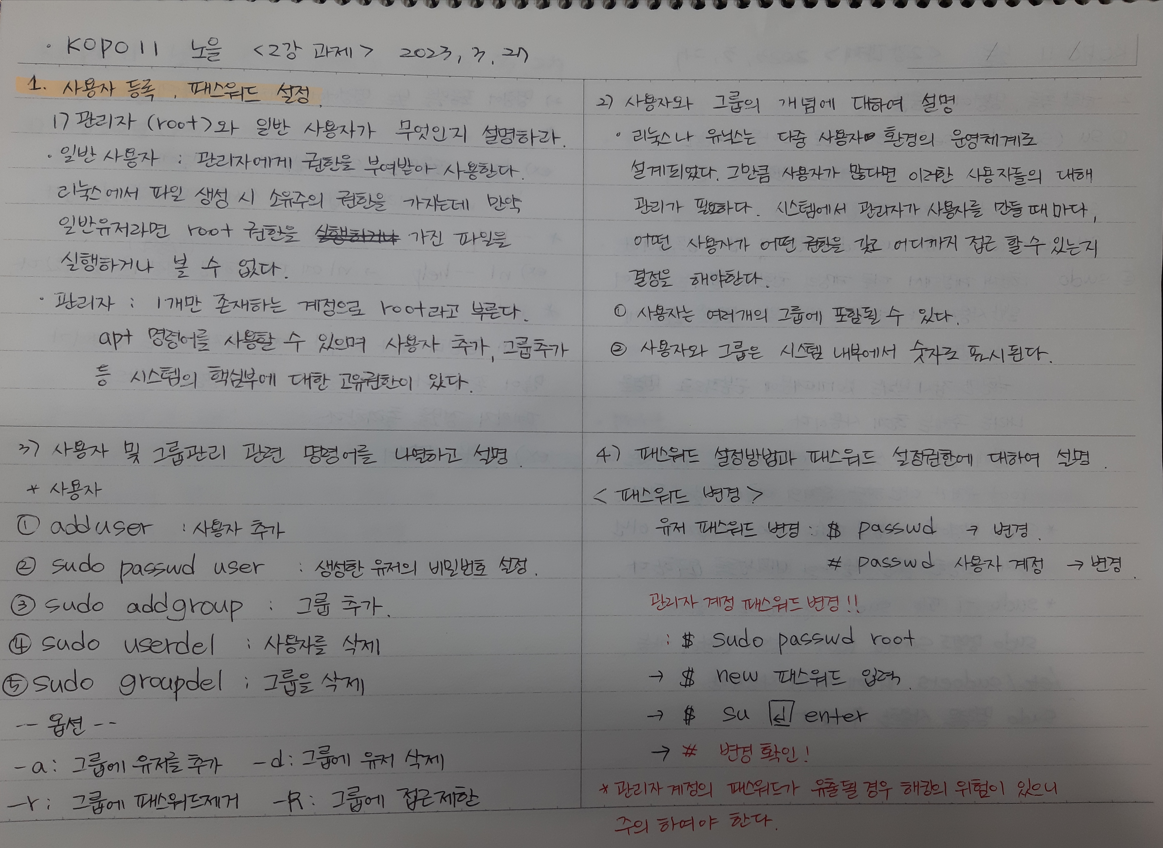 · KOPO11 노을 <2강 과제> 2023, 3. 27
1. 사용자 등록. 패스워드 설정
1) 관리자 (root)와 일반 사용자가 무엇인지 설명하라.
· 일반 사용자 : 관리자에게 권한을 부여받아 사용한다.
리눅스에서 파일 생성 시 소유주의 권한을 가지는데 만약
일반유저라면 root 권한을 실행하거나 가진 파일을
실행하거나 볼 수 없다.
· 관리자 : 1개만 존재하는 계정으로 root라고 부른다.
apt 명령어를 사용할 수 있으며 사용자 추가, 그룹추가
등 시스템의 핵심부에 대한 고유권한이 있다.
2) 사용자와 그룹의 개념에 대하여 설명
· 리눅스나 유닉스는 다중 사용자 환경의 운영체계로
설계되었다. 그만큼 사용자가 많다면 이러한 사용자들의 대해
관리가 필요하다. 시스템에서 관리자가 사용자를 만들 때마다,
어떤 사용자가 어떤 권한을 갖고 어디까지 접근 할 수 있는지
결정을 해야한다.
① 사용자는 여러개의 그룹에 포함될 수 있다.
② 사용자와 그룹은 시스템 내부에서 숫자로 표시된다.
3) 사용자 및 그룹관리 관련 명령어를 나열하고 설명.
* 사용자
① adduser : 사용자 추가
② sudo passwd user : 생성한 유저의 비밀번호 설정.
③ sudo addgroup : 그룹 추가.
④ sudo userdel : 사용자를 삭제
⑤ sudo groupdel ; 그룹을 삭제
-- 옵션 --
-a: 그룹에 유저를 추가 -d: 그룹에 유저 삭제
-r; 그룹에 패스워드제거 -R: 그룹에 접근제한
4) 패스워드 설정방법과 패스워드 설정권한에 대하여 설명.
< 패스워드 변경 >
유저 패스워드 변경: $ passwd → 변경.
# passwd 사용자 계정 → 변경
관리자 계정 패스워드 변경!!
: $ sudo passwd root
→ $ new 패스워드 입력.
→ $ su ↲ enter
→ # 변경 확인!
* 관리자 계정의 패스워드가 유출될 경우 해킹의 위험이 있으니
주의 하여야 한다.